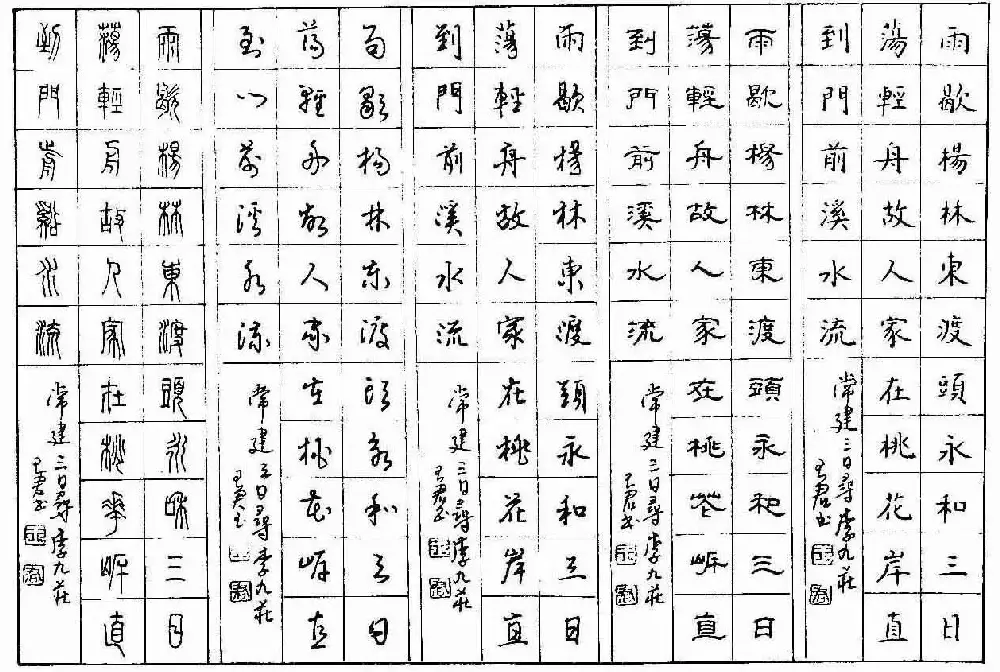 雨歇楊林東渡頭永和三日
蕩輕舟故人家在桃花岸直
到門前溪水流
常建三日尋李九莊
雨歇楊林東渡頭永和三日
蕩輕舟故人家在桃花岸直
到門前溪水流
常建三日尋李九莊
雨歇楊林東渡頭永和三日
蕩輕舟故人家在桃花岸直
到門前溪水流
常建三日尋李九莊
雨歇楊林東渡頭永和三日
蕩輕舟故人家在桃花岸直
到門前溪水流
常建三日尋李九莊
雨歇楊林東渡頭永和三日
蕩輕舟故人家在桃花岸直
到門前溪水流
常建三日尋李九莊